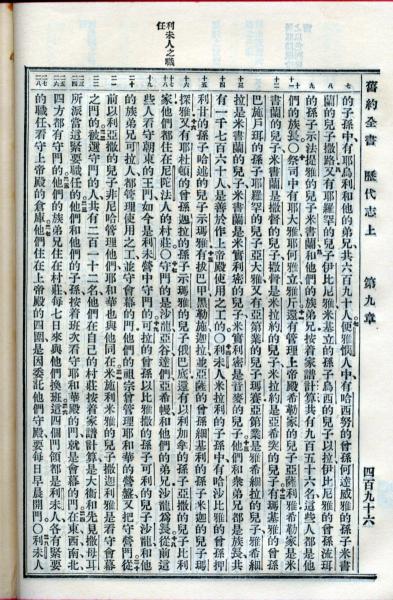 舊約全書 歷代志上 第九章 四百九十六
的子孫中有耶烏利和他的弟兄共六百九十人便雅憫人中有哈西努的曾孫何達威雅的孫子米書
蘭的兒子撒路又有耶羅罕的兒子伊比尼雅米基立的孫子烏西的兒子以拉伊比尼雅的曾孫流珥
的孫子示法提雅的兒子米書蘭和他們的族弟兄按着家譜計算共有九百五十六名這些人都是他
們的族長○祭司中有耶大雅耶何雅立雅斤還有管理上帝殿希勒家的兒子亞薩利雅希勒家是米
書蘭的兒子米書蘭是撒督的兒子撒督是米拉約的兒子米拉約是亞希突的兒子有瑪基雅的曾孫
巴施戶珥的孫子耶羅罕的兒子亞大雅又有亞第業的兒子瑪賽亞第業是雅希細拉的兒子雅希細
拉是米書蘭的兒子米書蘭是米實利密的兒子米實利密是音麥的兒子他們和衆弟兄都是族長共
有一千七百六十人是善於作上帝殿使用之工的○利未人米拉利的子孫中有哈沙比雅的曾孫押
利甘的孫子哈述的兒子示瑪雅有拔巴甲黑勒施迦拉並亞薩的曾孫細基利的孫子米迦的兒子瑪
探雅又有耶杜頓的曾孫迦拉的孫子示瑪雅的兒子俄巴底還有以利加拿的孫子亞撒的兒子比利
家他們都住在尼陀法人的村莊○守門的是沙龍亞谷達們亞希幔和他們的弟兄沙龍爲長從前這
些人看守朝東的王門如今是利未營中守門的可拉的曾孫以比雅撒的孫子可利的兒子沙龍和他
的族弟兄可拉人都管理使用之工並守會幕的門他們的祖宗曾管理耶和華的營盤又把守營門從
前以利亞撒的兒子非尼哈管理他們耶和華也與他同在米施利米雅的兒子撒迦利雅是看守會幕
之門的被選守門的人共有二百一十二名他們在自己的村莊按着家譜計算是大衛和先見撒母耳
所派當這緊要職任的他們和他們的子孫按着班次看守耶和華殿的門就是會幕的門在東西南北
四方都有守門的他們的族弟兄住在村莊每七日來與他們換班這四個門領都是利未人各有緊要
的職任看守上帝殿的倉庫他們住在上帝殿的四圍是因委託他們守殿要每日早晨開門○利未人
利未人之職
任